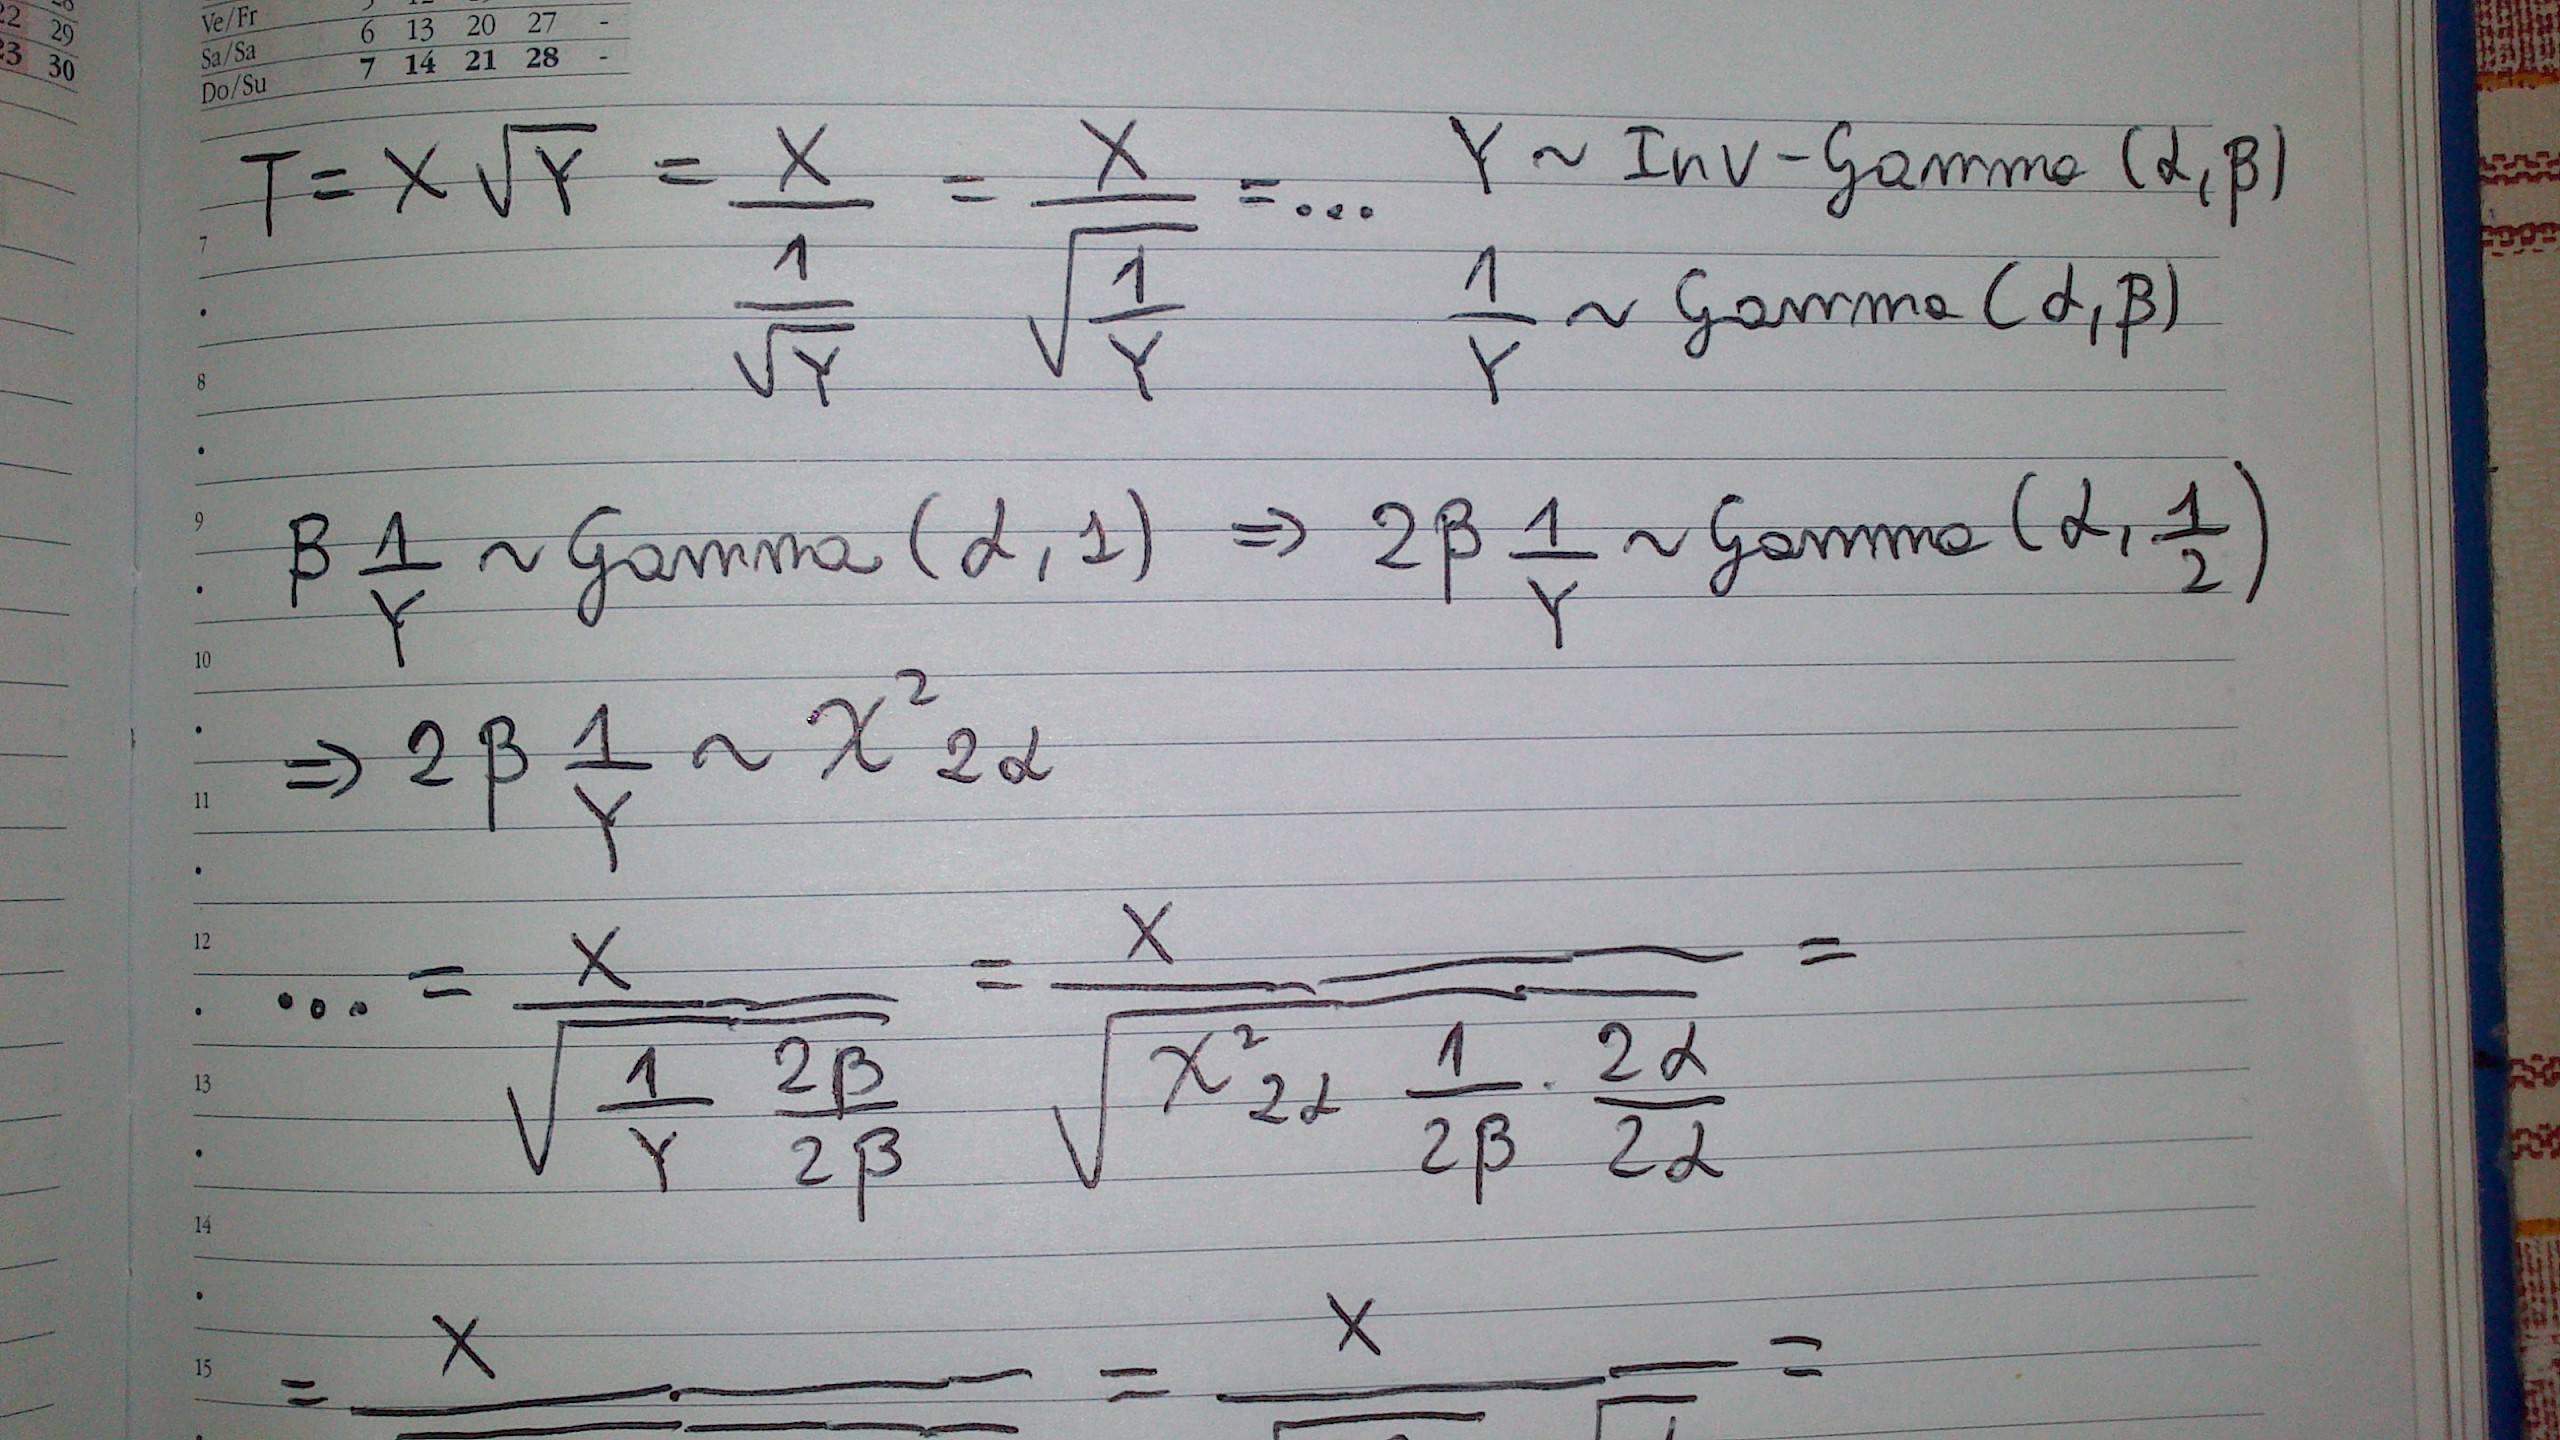 22 29
23 30
Ve/Fr
Sa/Sa 6 13 20 27 -
Do/Su 7 14 21 28 -
T = X √Y = X / (1/√Y) = X / √(1/Y) = ... Y ~ Inv-Gamma (α, β)
7
1/Y ~ Gamma (α, β)
8
9
β 1/Y ~ Gamma (α, 1) ⇒ 2β 1/Y ~ Gamma (α, 1/2)
10
⇒ 2β 1/Y ~ χ²2α
11
12
... = X / √(1/Y 2β/2β) = X / √(χ²2α 1/2β · 2α/2α) =
13
14
15
= X = X =